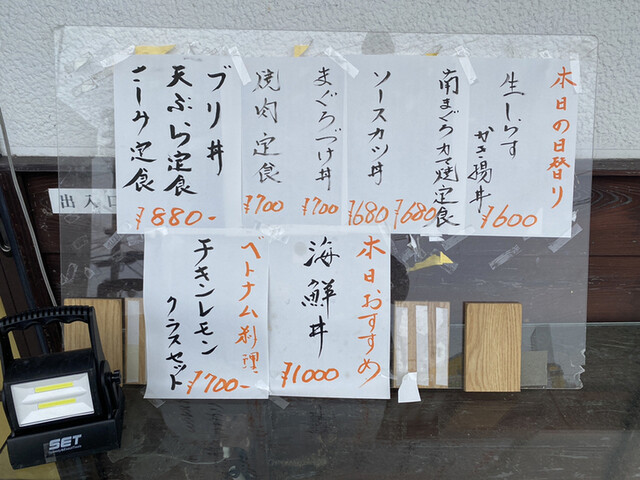 本日の日替り
生しらす
かき揚丼
¥600
南まぐろカマ焼定食
¥680
ソースカツ丼
¥680
まぐろづけ丼
¥700
焼肉定食
¥700
ブリ丼
天ぷら定食
さしみ定食
¥880-
出入口
本日おすすめ
海鮮丼
¥1000
ベトナム料理
チキンレモン
クラスセット
¥700-
SET